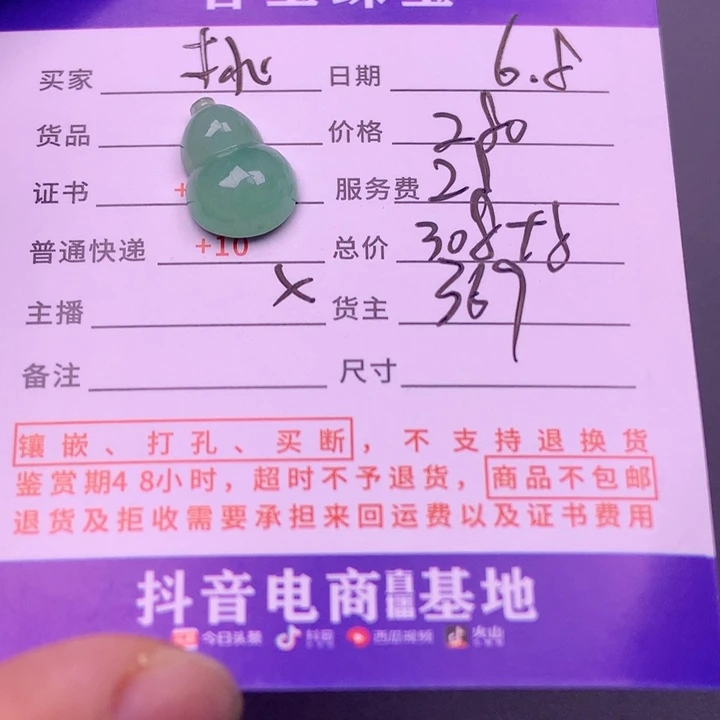 买家 日期 6.8
货品 价格 280
证书 + 服务费 28
普通快递 +10 总价 308+8
主播 × 货主 369
备注 尺寸
镶嵌、打孔、买断，不支持退换货
鉴赏期48小时，超时不予退货，商品不包邮
退货及拒收需要承担来回运费以及证书费用
抖音电商直播基地
今日头条 抖音 西瓜视频 火山